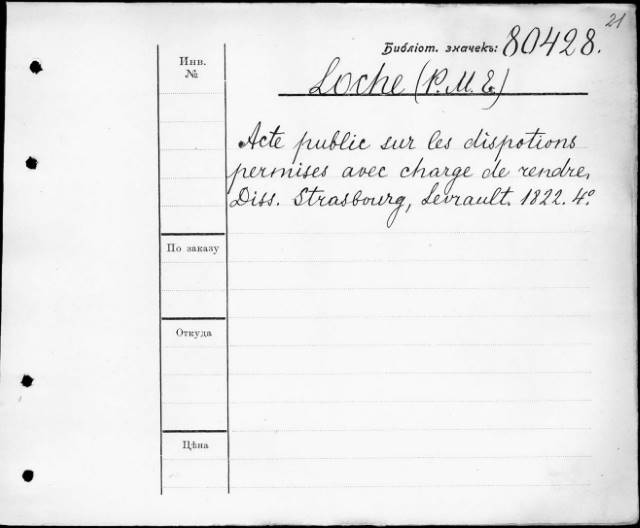 21
Библіот. значекъ: 80428.
Инв.
№
Loche (P. M. E.)
Acte public sur les dispotions
permises avec charge de rendre,
Diss. Strasbourg, Levrault. 1822. 4°
По заказу
Откуда
Цѣна